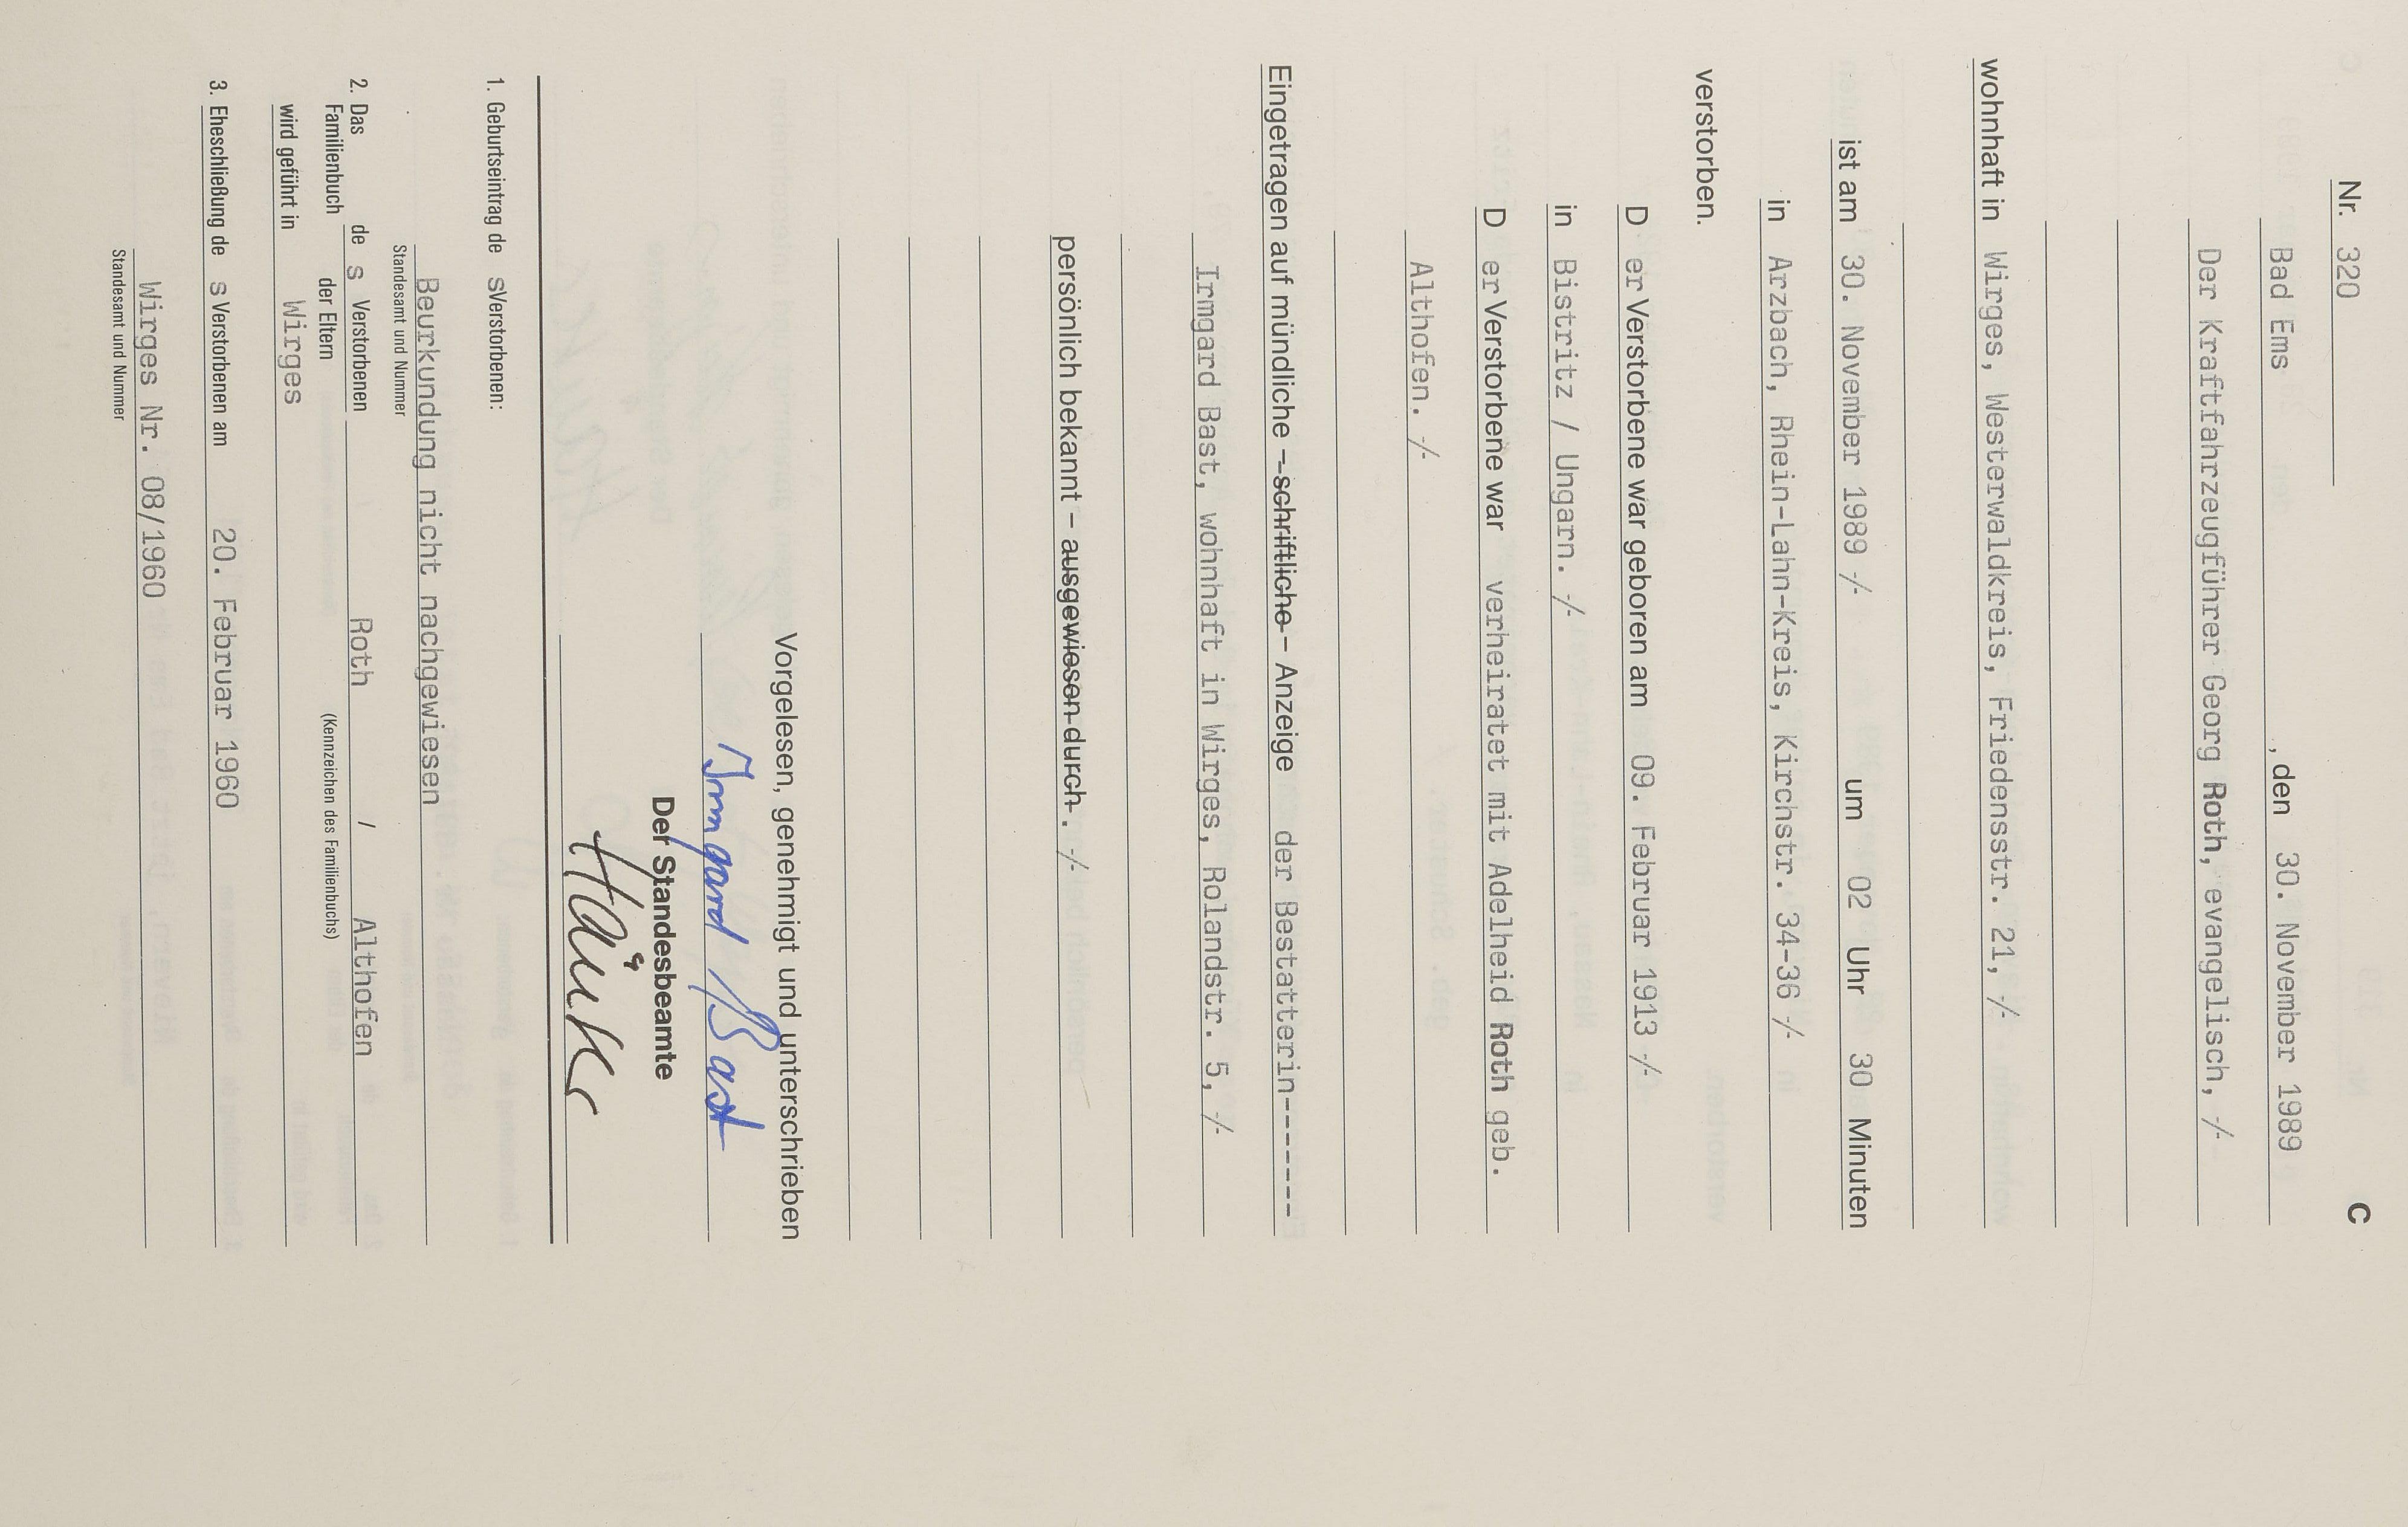 C
Nr. 320
Bad Ems , den 30. November 1989
Der Kraftfahrzeugführer Georg Roth, evangelisch, -/-
wohnhaft in Wirges, Westerwaldkreis, Friedensstr. 21, -/-
ist am 30. November 1989 -/- um 02 Uhr 30 Minuten
in Arzbach, Rhein-Lahn-Kreis, Kirchstr. 34-36 -/-
verstorben.
D er Verstorbene war geboren am 09. Februar 1913 -/-
in Bistritz / Ungarn. -/-
D er Verstorbene war verheiratet mit Adelheid Roth geb.
Althofen. -/-
Eingetragen auf mündliche – schriftliche – Anzeige der Bestatterin-------
Irmgard Bast, wohnhaft in Wirges, Rolandstr. 5, -/-
persönlich bekannt – ausgewiesen durch. -/-
Vorgelesen, genehmigt und unterschrieben
Irmgard Bast
Der Standesbeamte
1. Geburtseintrag de s Verstorbenen:
Beurkundung nicht nachgewiesen
Standesamt und Nummer
2. Das Familienbuch de s Verstorbenen der Eltern Roth / Althofen
(Kennzeichen des Familienbuchs)
wird geführt in Wirges
3. Eheschließung de s Verstorbenen am 20. Februar 1960
Wirges Nr. 08/1960
Standesamt und Nummer